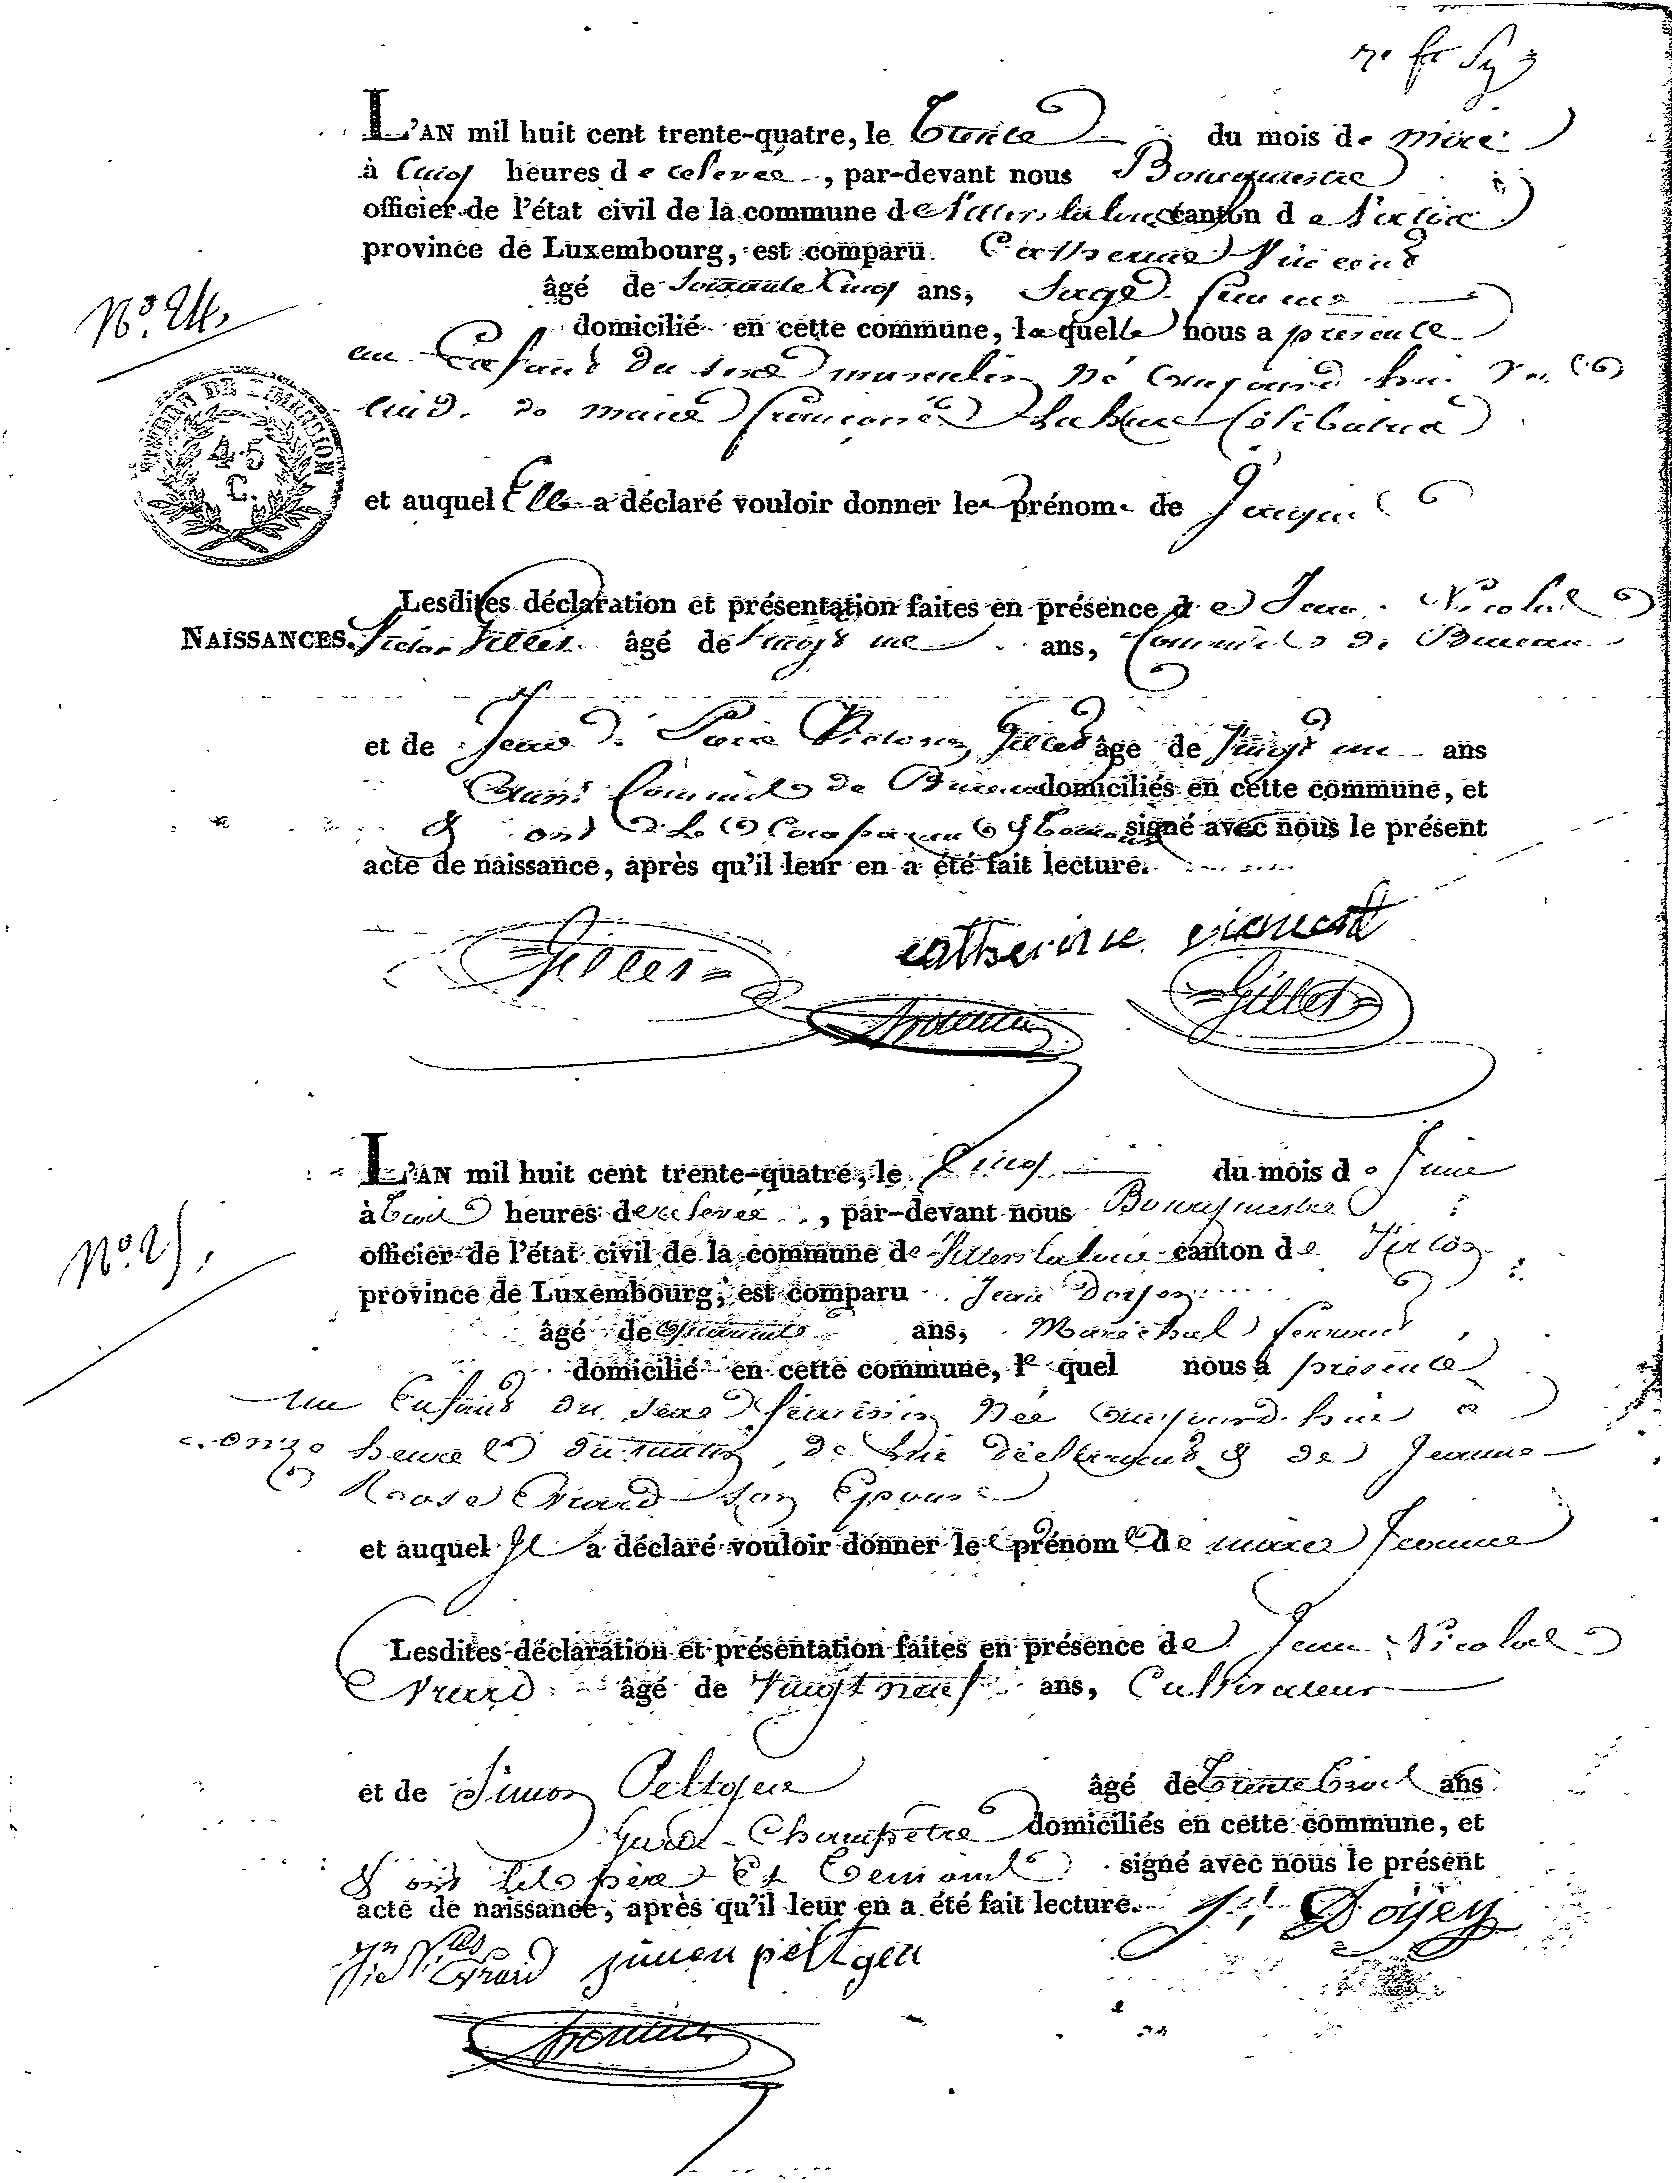 7e ft
L'AN mil huit cent trente-quatre, le Trente du mois de mai
à Cinq heures de relevée, par-devant nous Bourgmestre
officier de l'état civil de la commune de Villers la loue canton de Virton
province de Luxembourg, est comparu Catherine Vincent
âgé de Soixante Cinq ans, Sage femme
N° 24.
domicilié en cette commune, laquelle nous a présenté
un Enfant du sexe masculin né aujourd'hui
de marie françoise Célibataire
45
C.
et auquel Elle a déclaré vouloir donner le prénom de Jacques
Lesdites déclaration et présentation faites en présence de Jean Nicolas
NAISSANCES.
Victor Gillet âgé de Vingt un ans, Commis de Bureau
et de Jean Victor Gillet âgé de Vingt un ans
aussi Commis de Bureau domiciliés en cette commune, et
& ont la Comparante & témoins signé avec nous le présent
acte de naissance, après qu'il leur en a été fait lecture.
Gillet catherine vicent
Gillet
L'AN mil huit cent trente-quatre, le Cinq du mois de Juin
à trois heures de relevée, par-devant nous Bourgmestre
N° 25.
officier de l'état civil de la commune de Villers la loue canton de Virton
province de Luxembourg, est comparu Jean Doyen
âgé de quarante ans, Maréchal ferrant
domicilié en cette commune, le quel nous a présenté
un Enfant du sexe féminin née aujourd'hui à
onze heures du matin, de lui déclarant & de Jeanne
Rose Evrard son Epouse
et auquel Il a déclaré vouloir donner le prénom de marie Jeanne
Lesdites déclaration et présentation faites en présence de Jean Nicolas
Evrard âgé de Vingt neuf ans, Cultivateur
et de Simon Peltgen âgé de Trente trois ans
Garde Champêtre domiciliés en cette commune, et
& ont les père et témoins signé avec nous le présent
acte de naissance, après qu'il leur en a été fait lecture.
J. Doyen
Jn Nlas Evrard simon peltgen